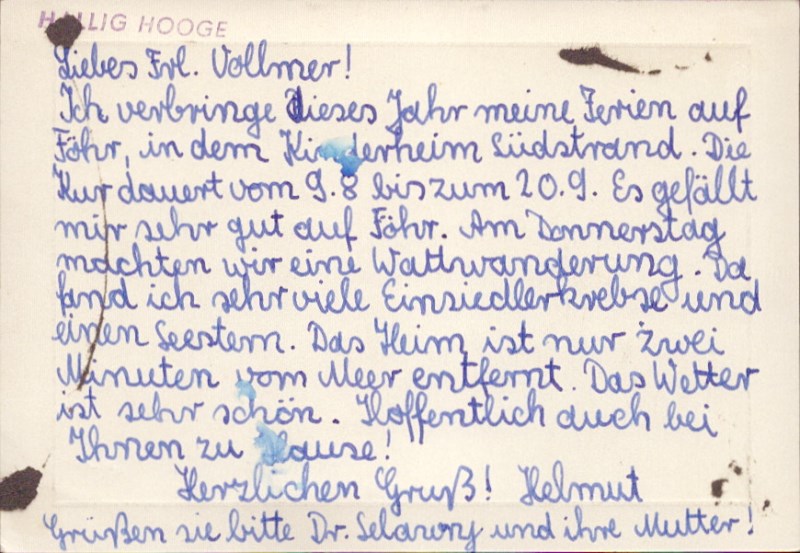 HALLIG HOOGE
Liebes Frl. Vollmer!
Ich verbringe dieses Jahr meine Ferien auf
Föhr, in dem Kinderheim Südstrand. Die
Kur dauert vom 9.8 bis zum 20.9. Es gefällt
mir sehr gut auf Föhr. Am Donnerstag
machten wir eine Wattwanderung. Da
fand ich sehr viele Einsiedlerkrebse und
einen Seestern. Das Heim ist nur zwei
Minuten vom Meer entfernt. Das Wetter
ist sehr schön. Hoffentlich auch bei
Ihnen zu Hause!
Herzlichen Gruß! Helmut
Grüßen sie bitte Dr. und ihre Mutter!